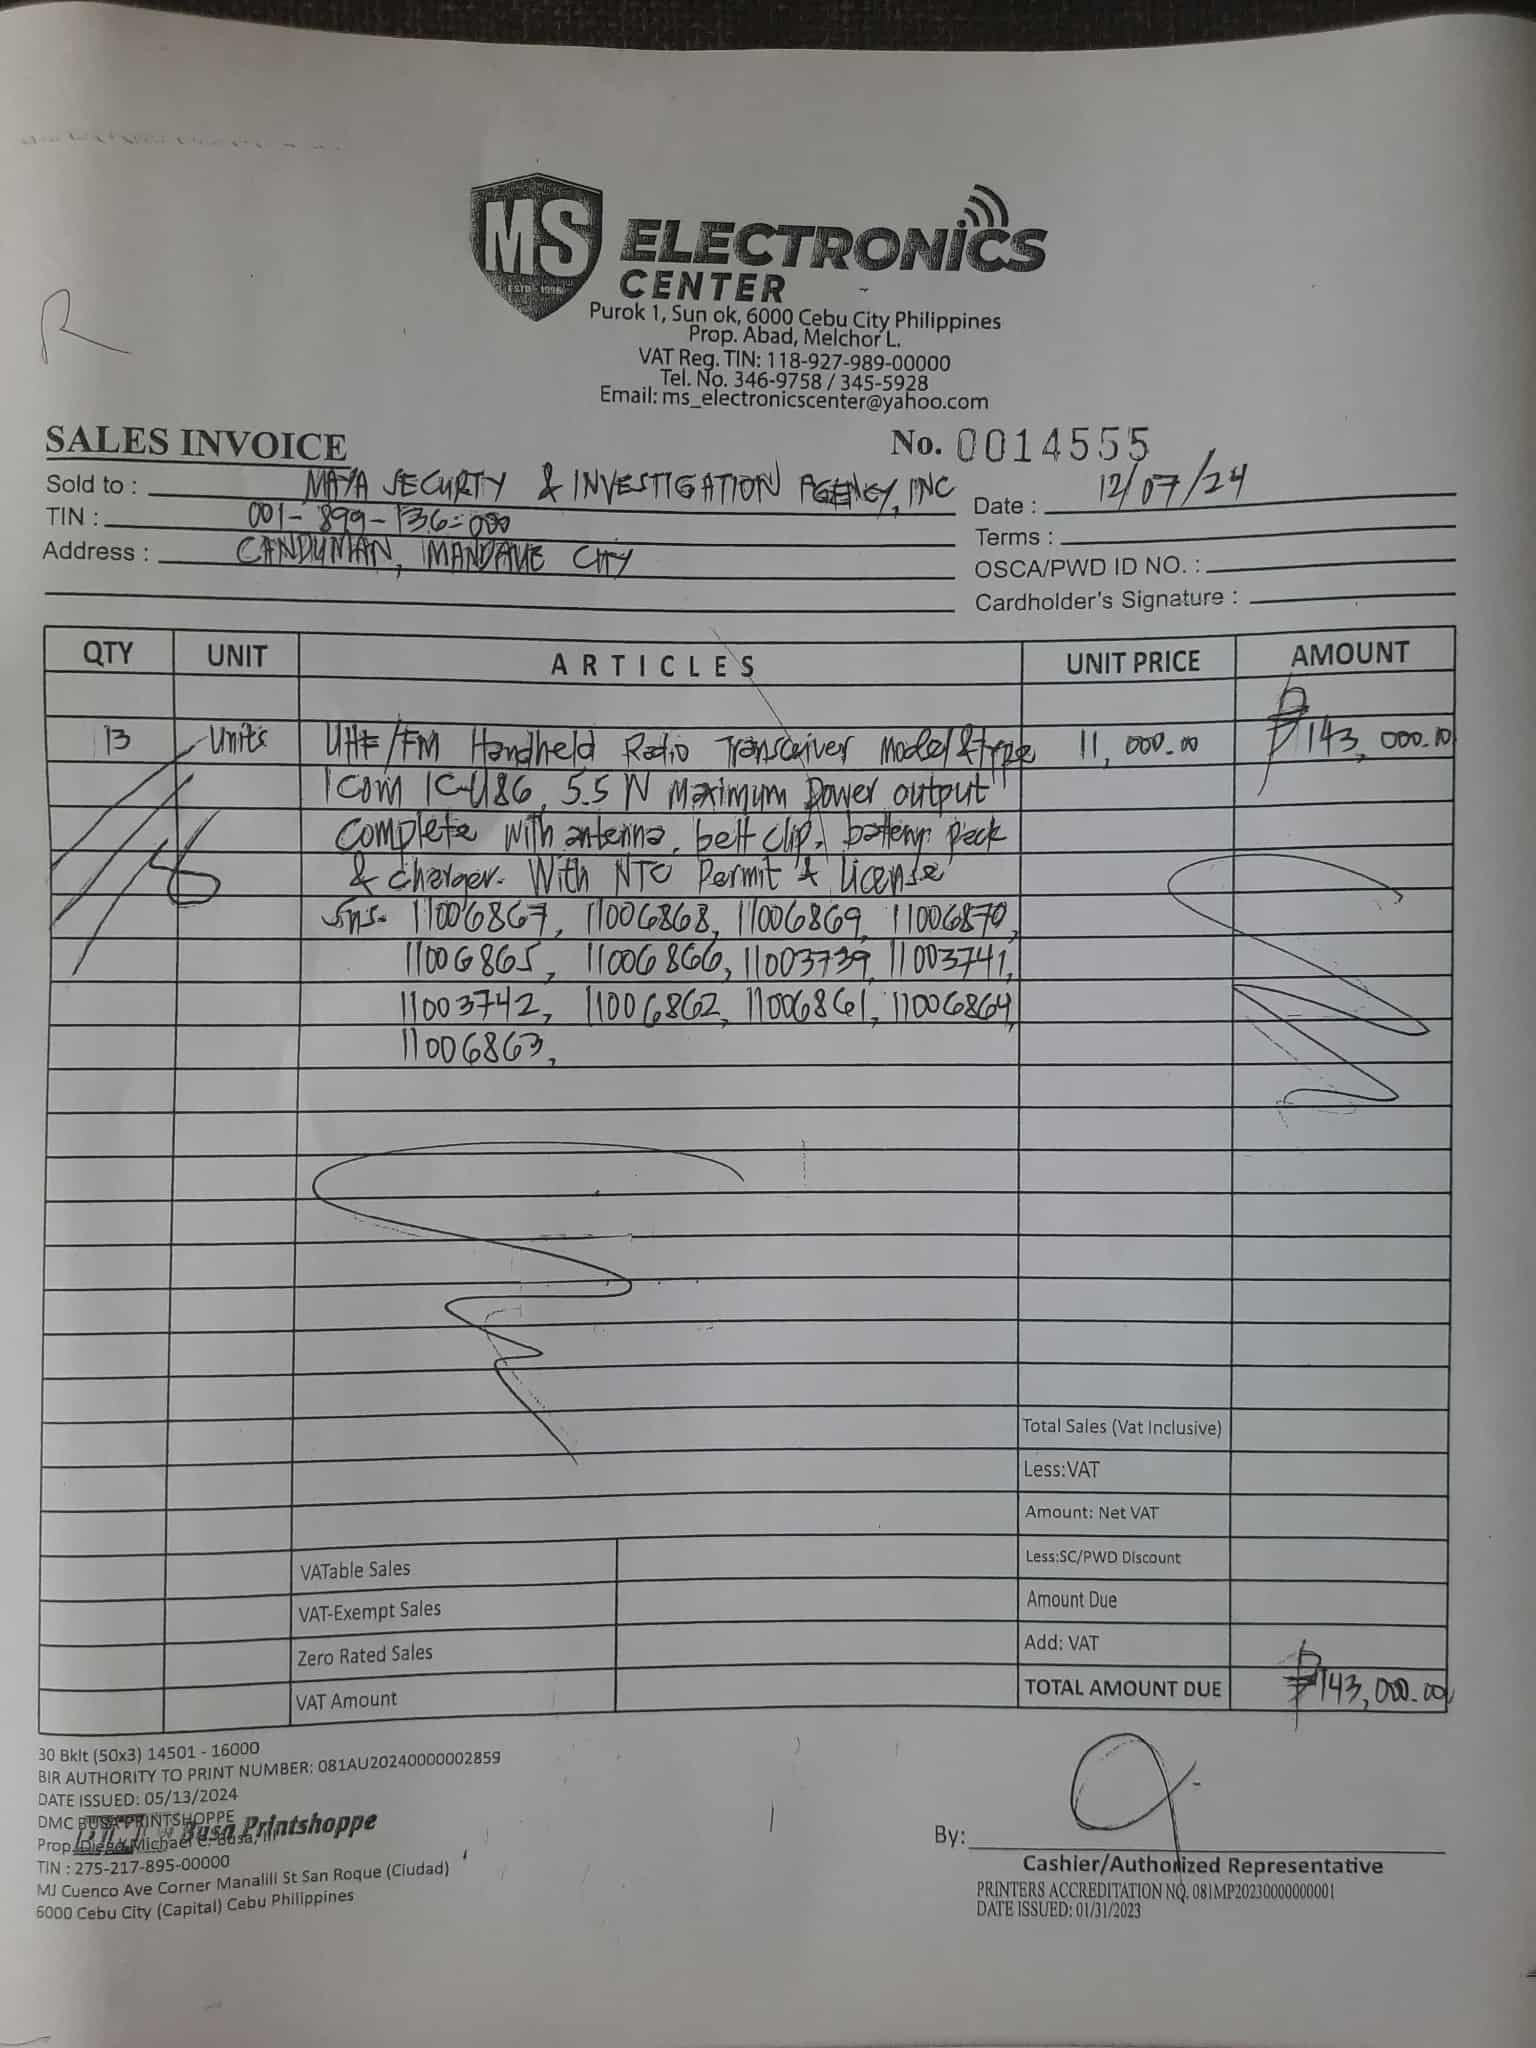 MS
ESTD - 1996
ELECTRONICS
CENTER
Purok 1, Sun ok, 6000 Cebu City Philippines
Prop. Abad, Melchor L.
VAT Reg. TIN: 118-927-989-00000
Tel. No. 346-9758 / 345-5928
Email: ms_electronicscenter@yahoo.com
R
SALES INVOICE
No. 0014555
Sold to : MAYA SECURTY & INVESTIGATION AGENCY, INC
Date : 12/07/24
TIN : 001-899-136-000
Terms :
Address : CANDUMAN, MANDAUE CITY
OSCA/PWD ID NO. :
Cardholder's Signature :
QTY UNIT ARTICLES UNIT PRICE AMOUNT
13 Units UHF/FM Handheld Radio Transceiver Model & type 11,000.00 ₱143,000.00
ICOM IC-U86, 5.5 W Maximum Power output
Complete with antenna, belt clip, battery pack
& charger. With NTC Permit & License
Sns. 11006867, 11006868, 11006869, 11006870,
11006865, 11006866, 11003739, 11003741,
11003742, 11006862, 11006861, 11006864,
11006863,
Total Sales (Vat Inclusive)
Less:VAT
Amount: Net VAT
VATable Sales Less:SC/PWD Discount
VAT-Exempt Sales Amount Due
Zero Rated Sales Add: VAT
VAT Amount TOTAL AMOUNT DUE ₱143,000.00
30 Bklt (50x3) 14501 - 16000
BIR AUTHORITY TO PRINT NUMBER: 081AU20240000002859
DATE ISSUED: 05/13/2024
DMC BUSA PRINTSHOPPE
Busa Printshoppe
Prop. Diego Michael C. Busa, III
TIN : 275-217-895-00000
MJ Cuenco Ave Corner Manalili St San Roque (Ciudad)
6000 Cebu City (Capital) Cebu Philippines
By:
Cashier/Authorized Representative
PRINTERS ACCREDITATION NO. 081MP20230000000001
DATE ISSUED: 01/31/2023